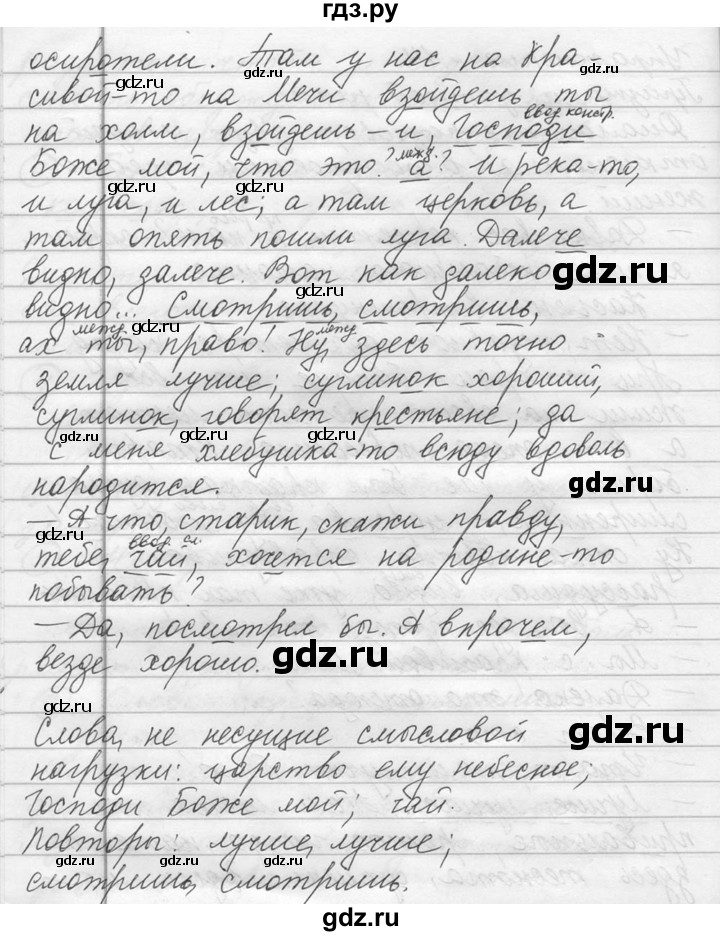 гдз.ру
осиротели. Там у нас на Кра-
сивой-то на Мечи взойдешь ты
ввод. констр.
на холм, взойдешь – и, Господи
межд.
Боже мой, что это? а? И река-то,
и луга, и лес; а там церковь, а
там опять пошли луга. Далече
видно, далече. Вот как далеко
видно... Смотришь, смотришь,
межд. межд.
ах ты, право! Ну, здесь точно
земля лучше; суглинок хороший,
суглинок, говорят крестьяне; да
с меня хлебушка-то всюду вдоволь
народится.
– А что, старик, скажи правду,
ввод. сл.
тебе, чай, хочется на родине-то
побывать?
– Да, посмотрел бы. А впрочем,
везде хорошо.
Слова, не несущие смысловой
нагрузки: царство ему небесное;
Господи Боже мой; чай.
Повторы: лучше, лучше;
смотришь, смотришь.
gdz.ru